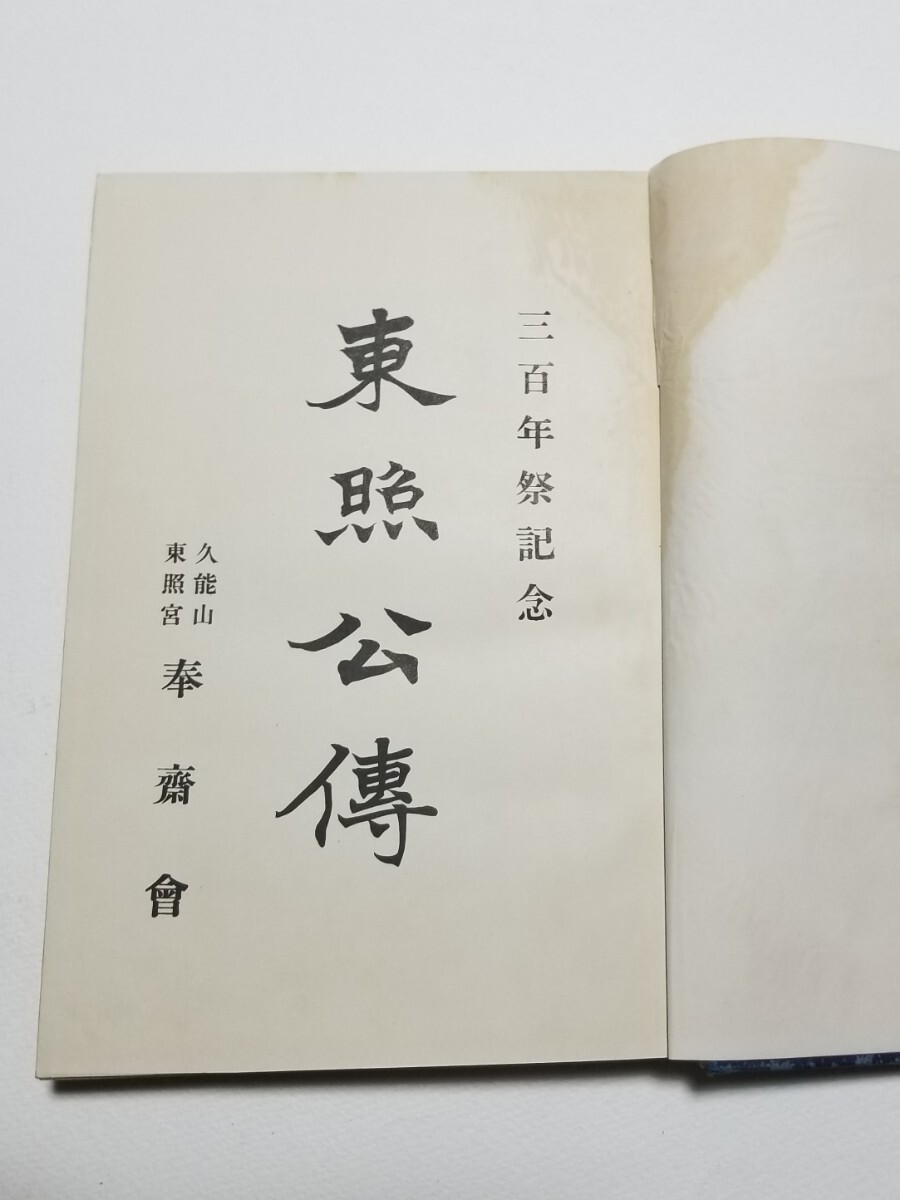 三百年祭記念
東照公傳
久能山
東照宮
奉齋會